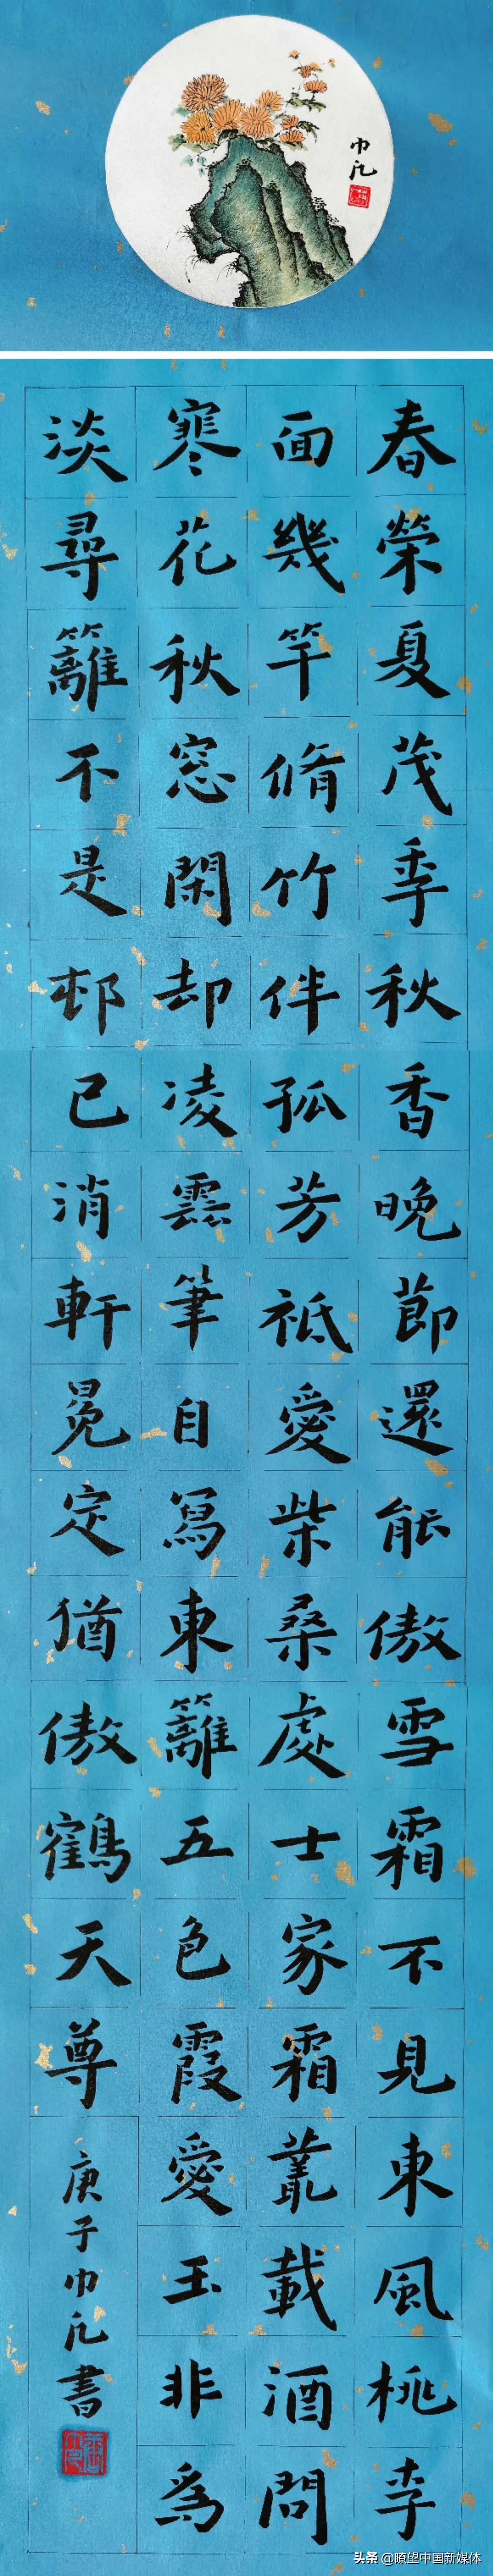 巾凡
春榮夏茂季秋香晚節還能傲雪霜不見東風桃李
面幾竿脩竹伴孤芳祗愛柴桑處士家霜叢載酒問
寒花秋窓閑却凌雲筆自寫東籬五色霞愛玉非爲
淡尋籬不是邨已消軒冕定猶傲鶴天尊
庚子巾凡書
头条 @瞭望中国新媒体